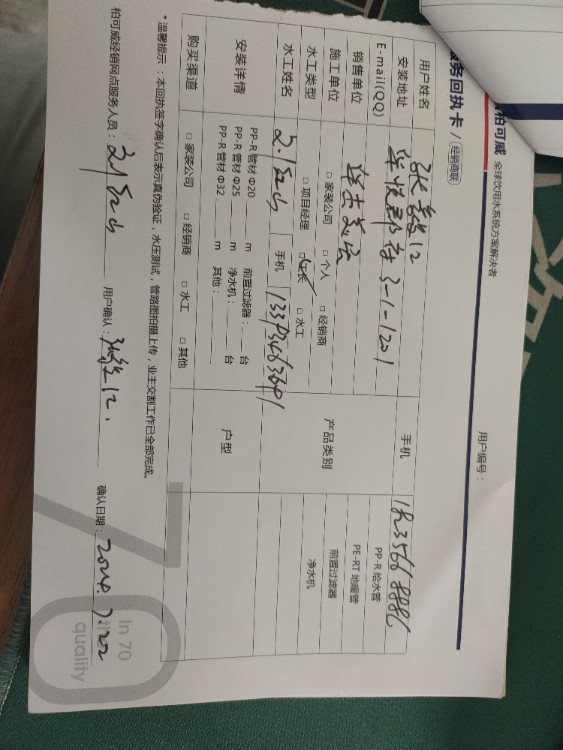 柏可威 全球饮用水系统方案解决者
服务回执卡 / 经销商联
用户编号：
用户姓名
手机
安装地址 3-1-1201
E-mail(QQ)
销售单位
产品类别
PP-R 给水管
PE-RT 地暖管
前置过滤器
净水机
施工单位 □ 家装公司 □ 个人 □ 经销商
水工类型 □ 项目经理 □ 工长 □ 水工
水工姓名 手机
安装详情
PP-R 管材 Φ20 m 前置过滤器： 台
PP-R 管材 Φ25 m 净水机： 台
PP-R 管材 Φ32 m 其他：
户型
购买渠道 □ 家装公司 □ 经销商 □ 水工 □ 其他
*温馨提示：本回执签字确认后表示真伪验证，水压测试，管路图拍摄上传，业主交割工作已全部完成。
柏可威经销网点服务人员： 用户确认： 确认日期：2024.7.22
70
In 70
quality